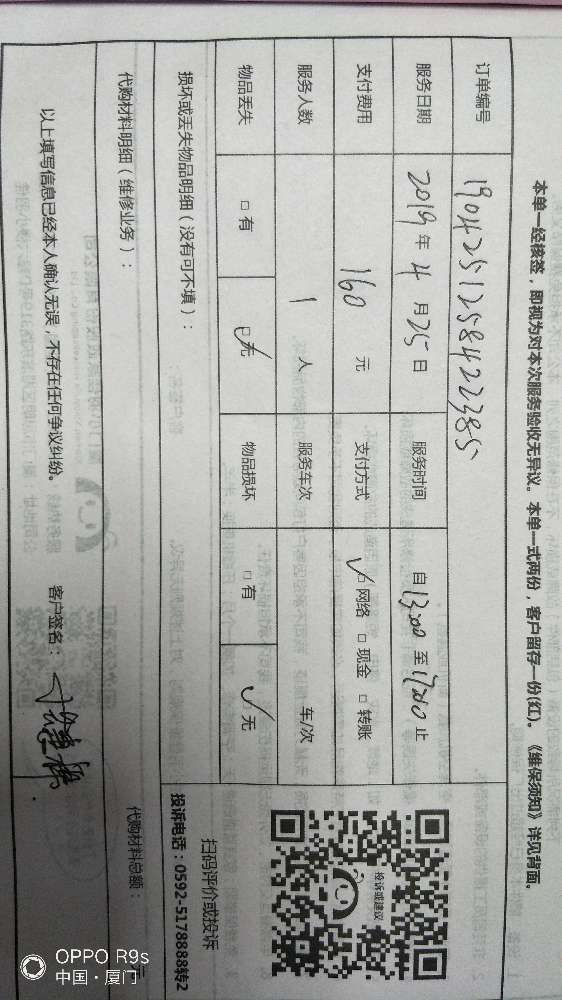 本单一经核签，即视为对本次服务验收无异议。本单一式两份，客户留存一份(红)。《维保须知》详见背面。
订单编号 190425125842385
服务日期 2019年4月25日 服务时间 自13:00至17:00止
支付费用 160元 支付方式 ☑网络 □现金 □转账
服务人数 1人 服务车次 车/次
物品丢失 □有 ☑无 物品损坏 □有 ☑无
投诉或建议
扫码评价或投诉
投诉电话：0592-5178888转2
损坏或丢失物品明细（没有可不填）：
代购材料明细（维修业务）： 代购材料总额： 元
以上填写信息已经本人确认无误，不存在任何争议纠纷。 客户签名：
OPPO R9s
中国·厦门